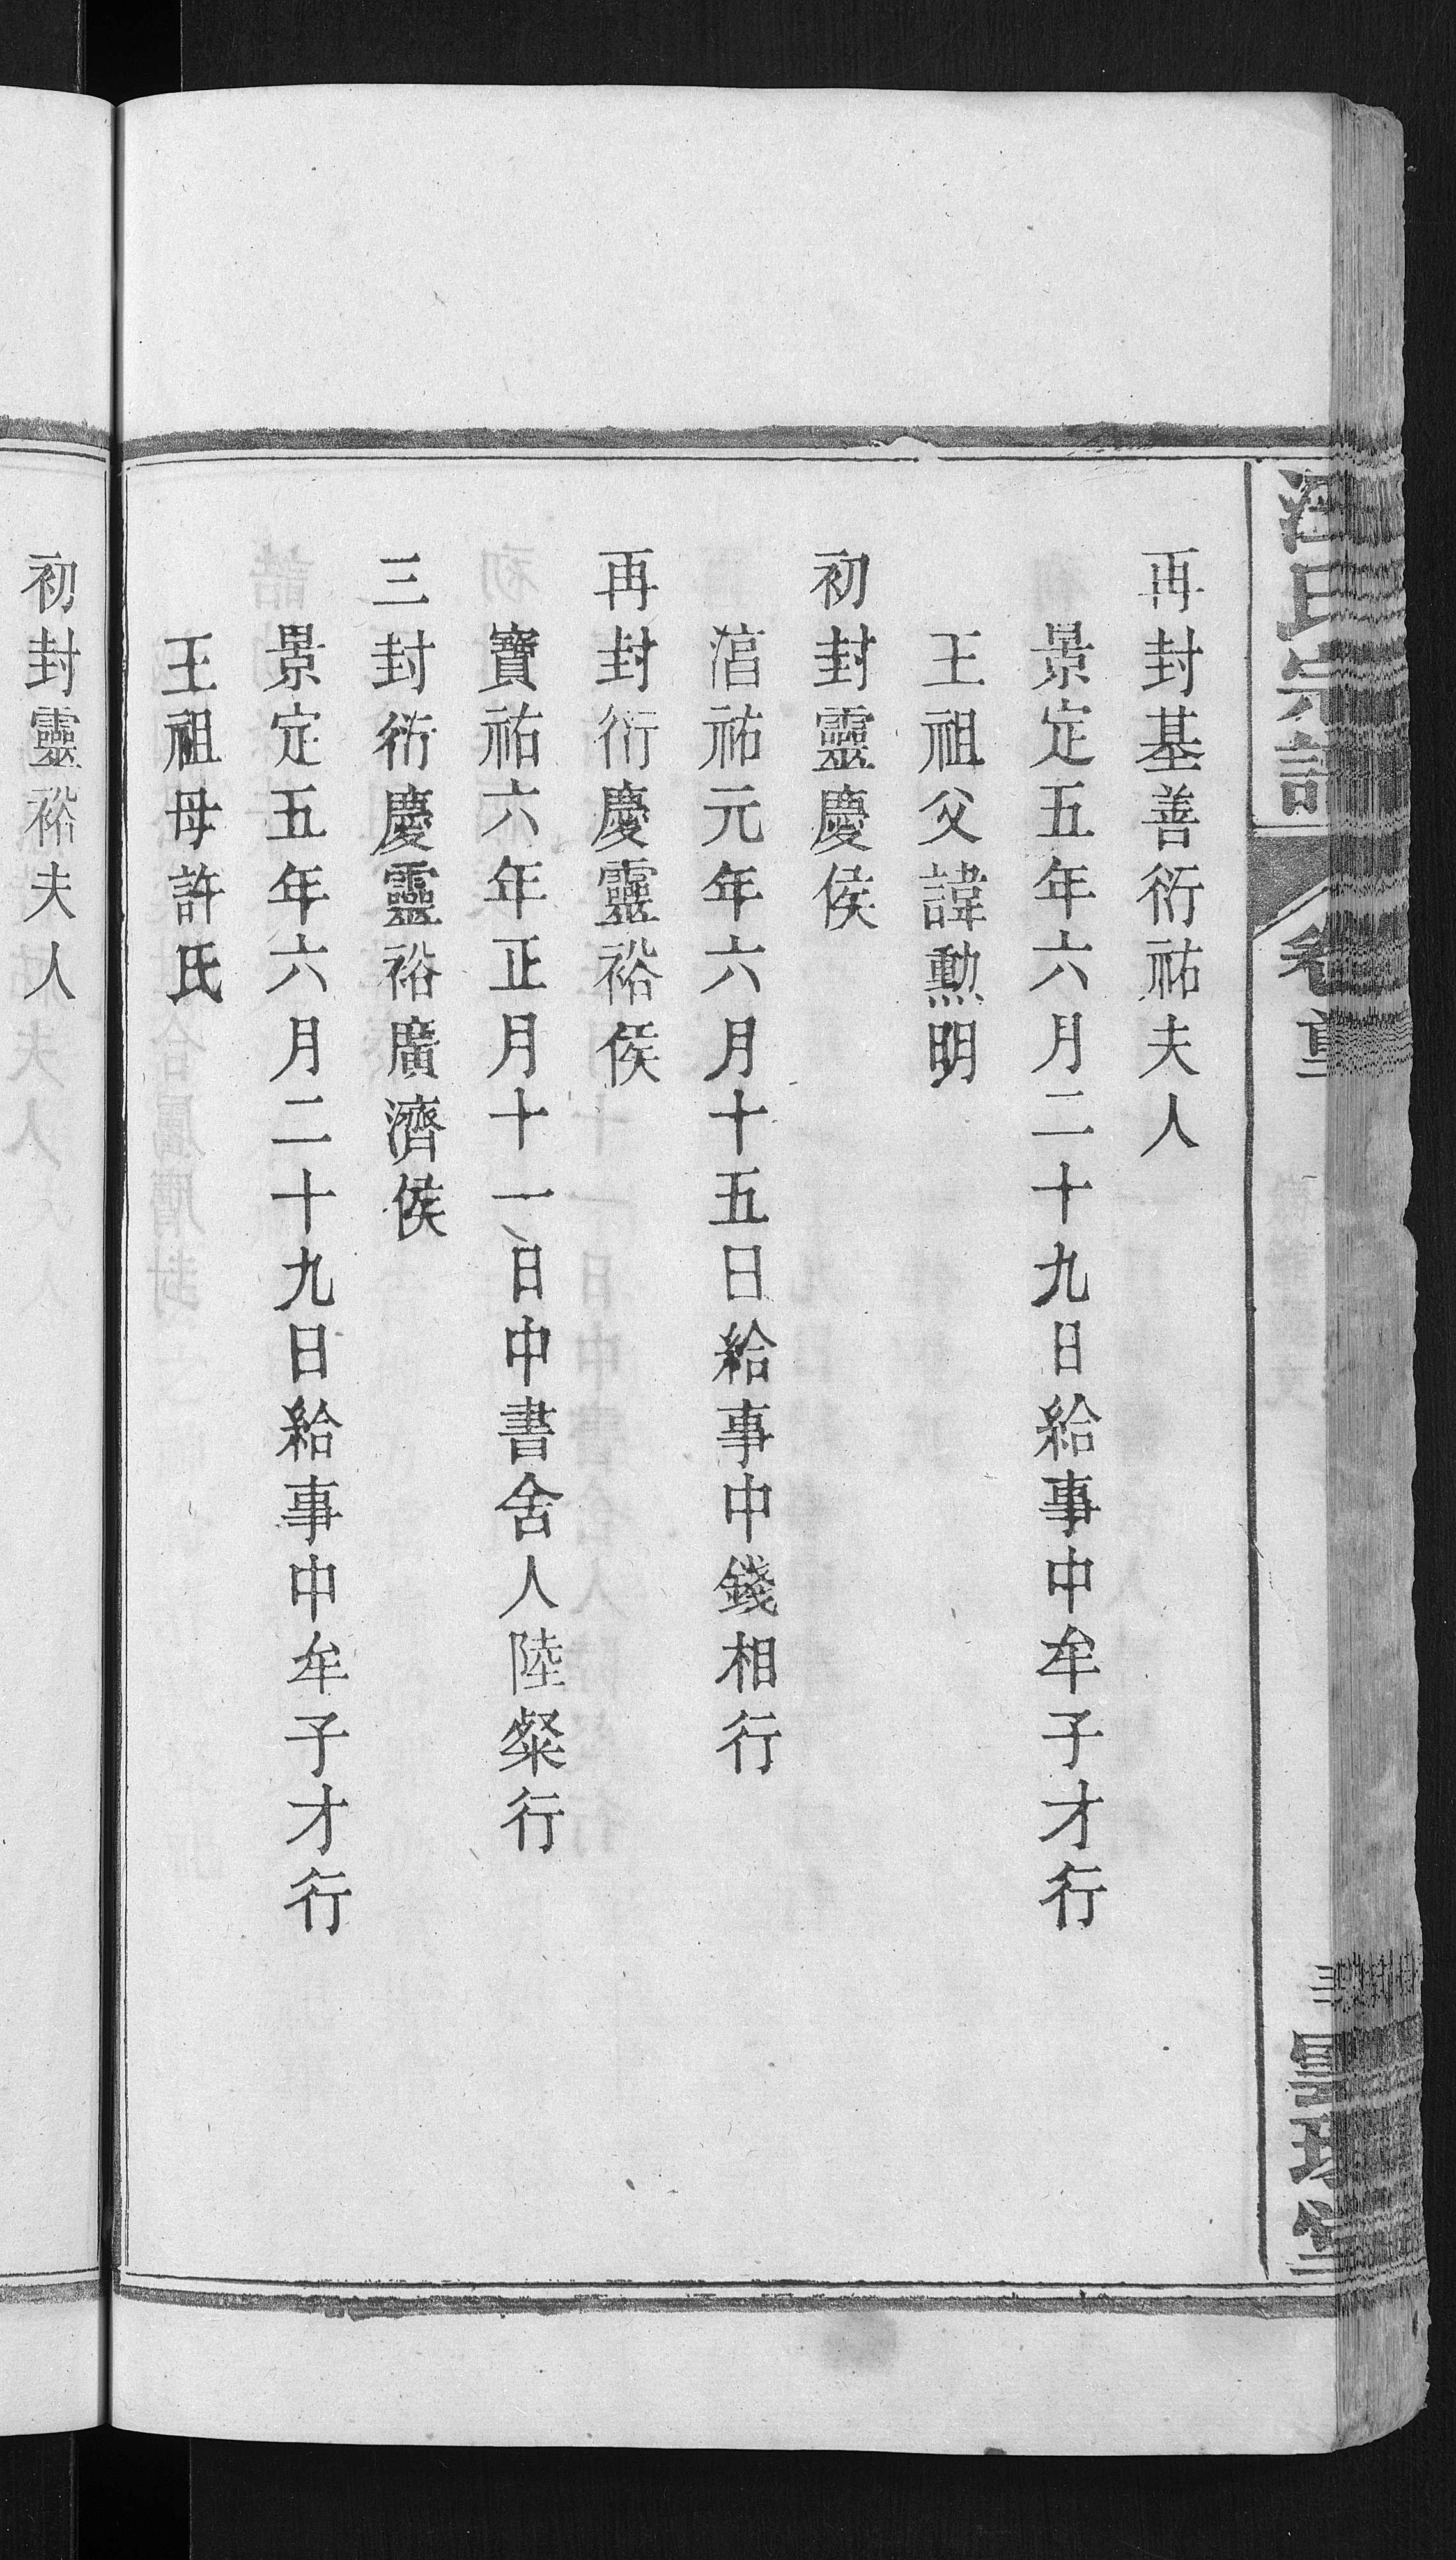 汪氏宗譜
再封基善衍祐夫人
景定五年六月二十九日給事中牟子才行
王祖父諱勲明
初封靈慶侯
淳祐元年六月十五日給事中錢相行
再封衍慶靈裕侯
寶祐六年正月十一日中書舍人陸粲行
三封衍慶靈裕廣濟侯
景定五年六月二十九日給事中牟子才行
王祖母許氏
初封靈裕夫人